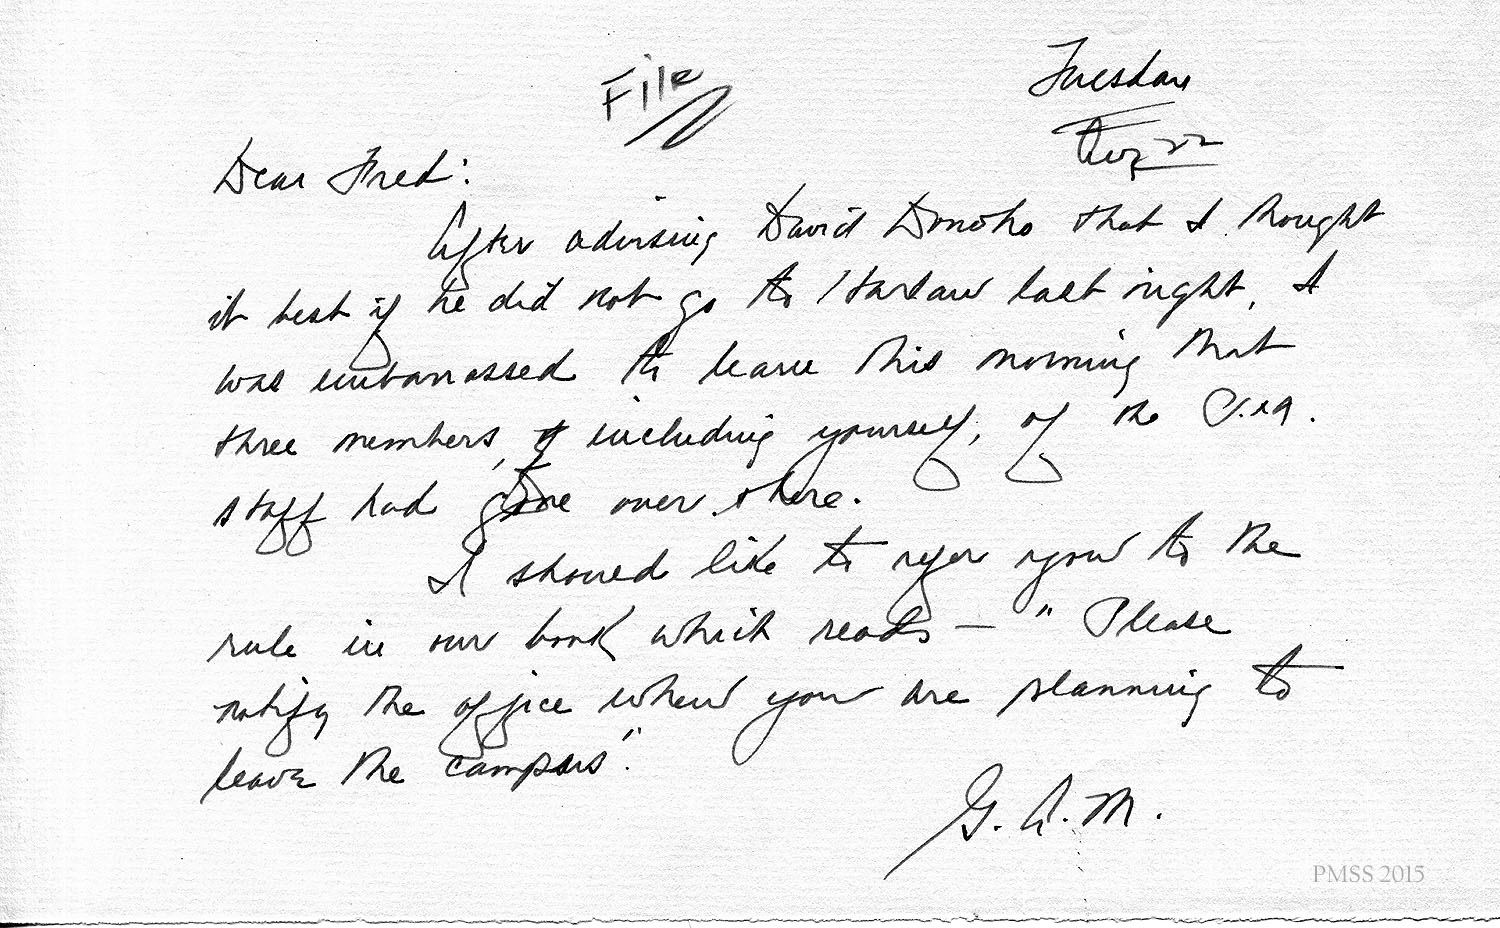 File
Tuesday
Aug 22
Dear Fred:
After advising David Donoho that I thought
it best if he did not go to Harlan last night, I
was embarrassed to learn this morning that
three members, including yourself, of the P.M.
staff had gone over there.
I should like to refer you to the
rule in our book which reads — "Please
notify the office when you are planning to
leave the campus".
G. A. M.
PMSS 2015